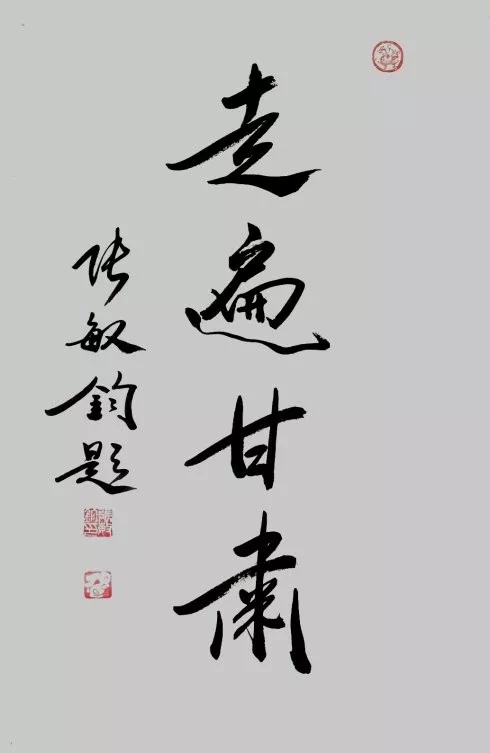 走遍甘肃
张敏钧题